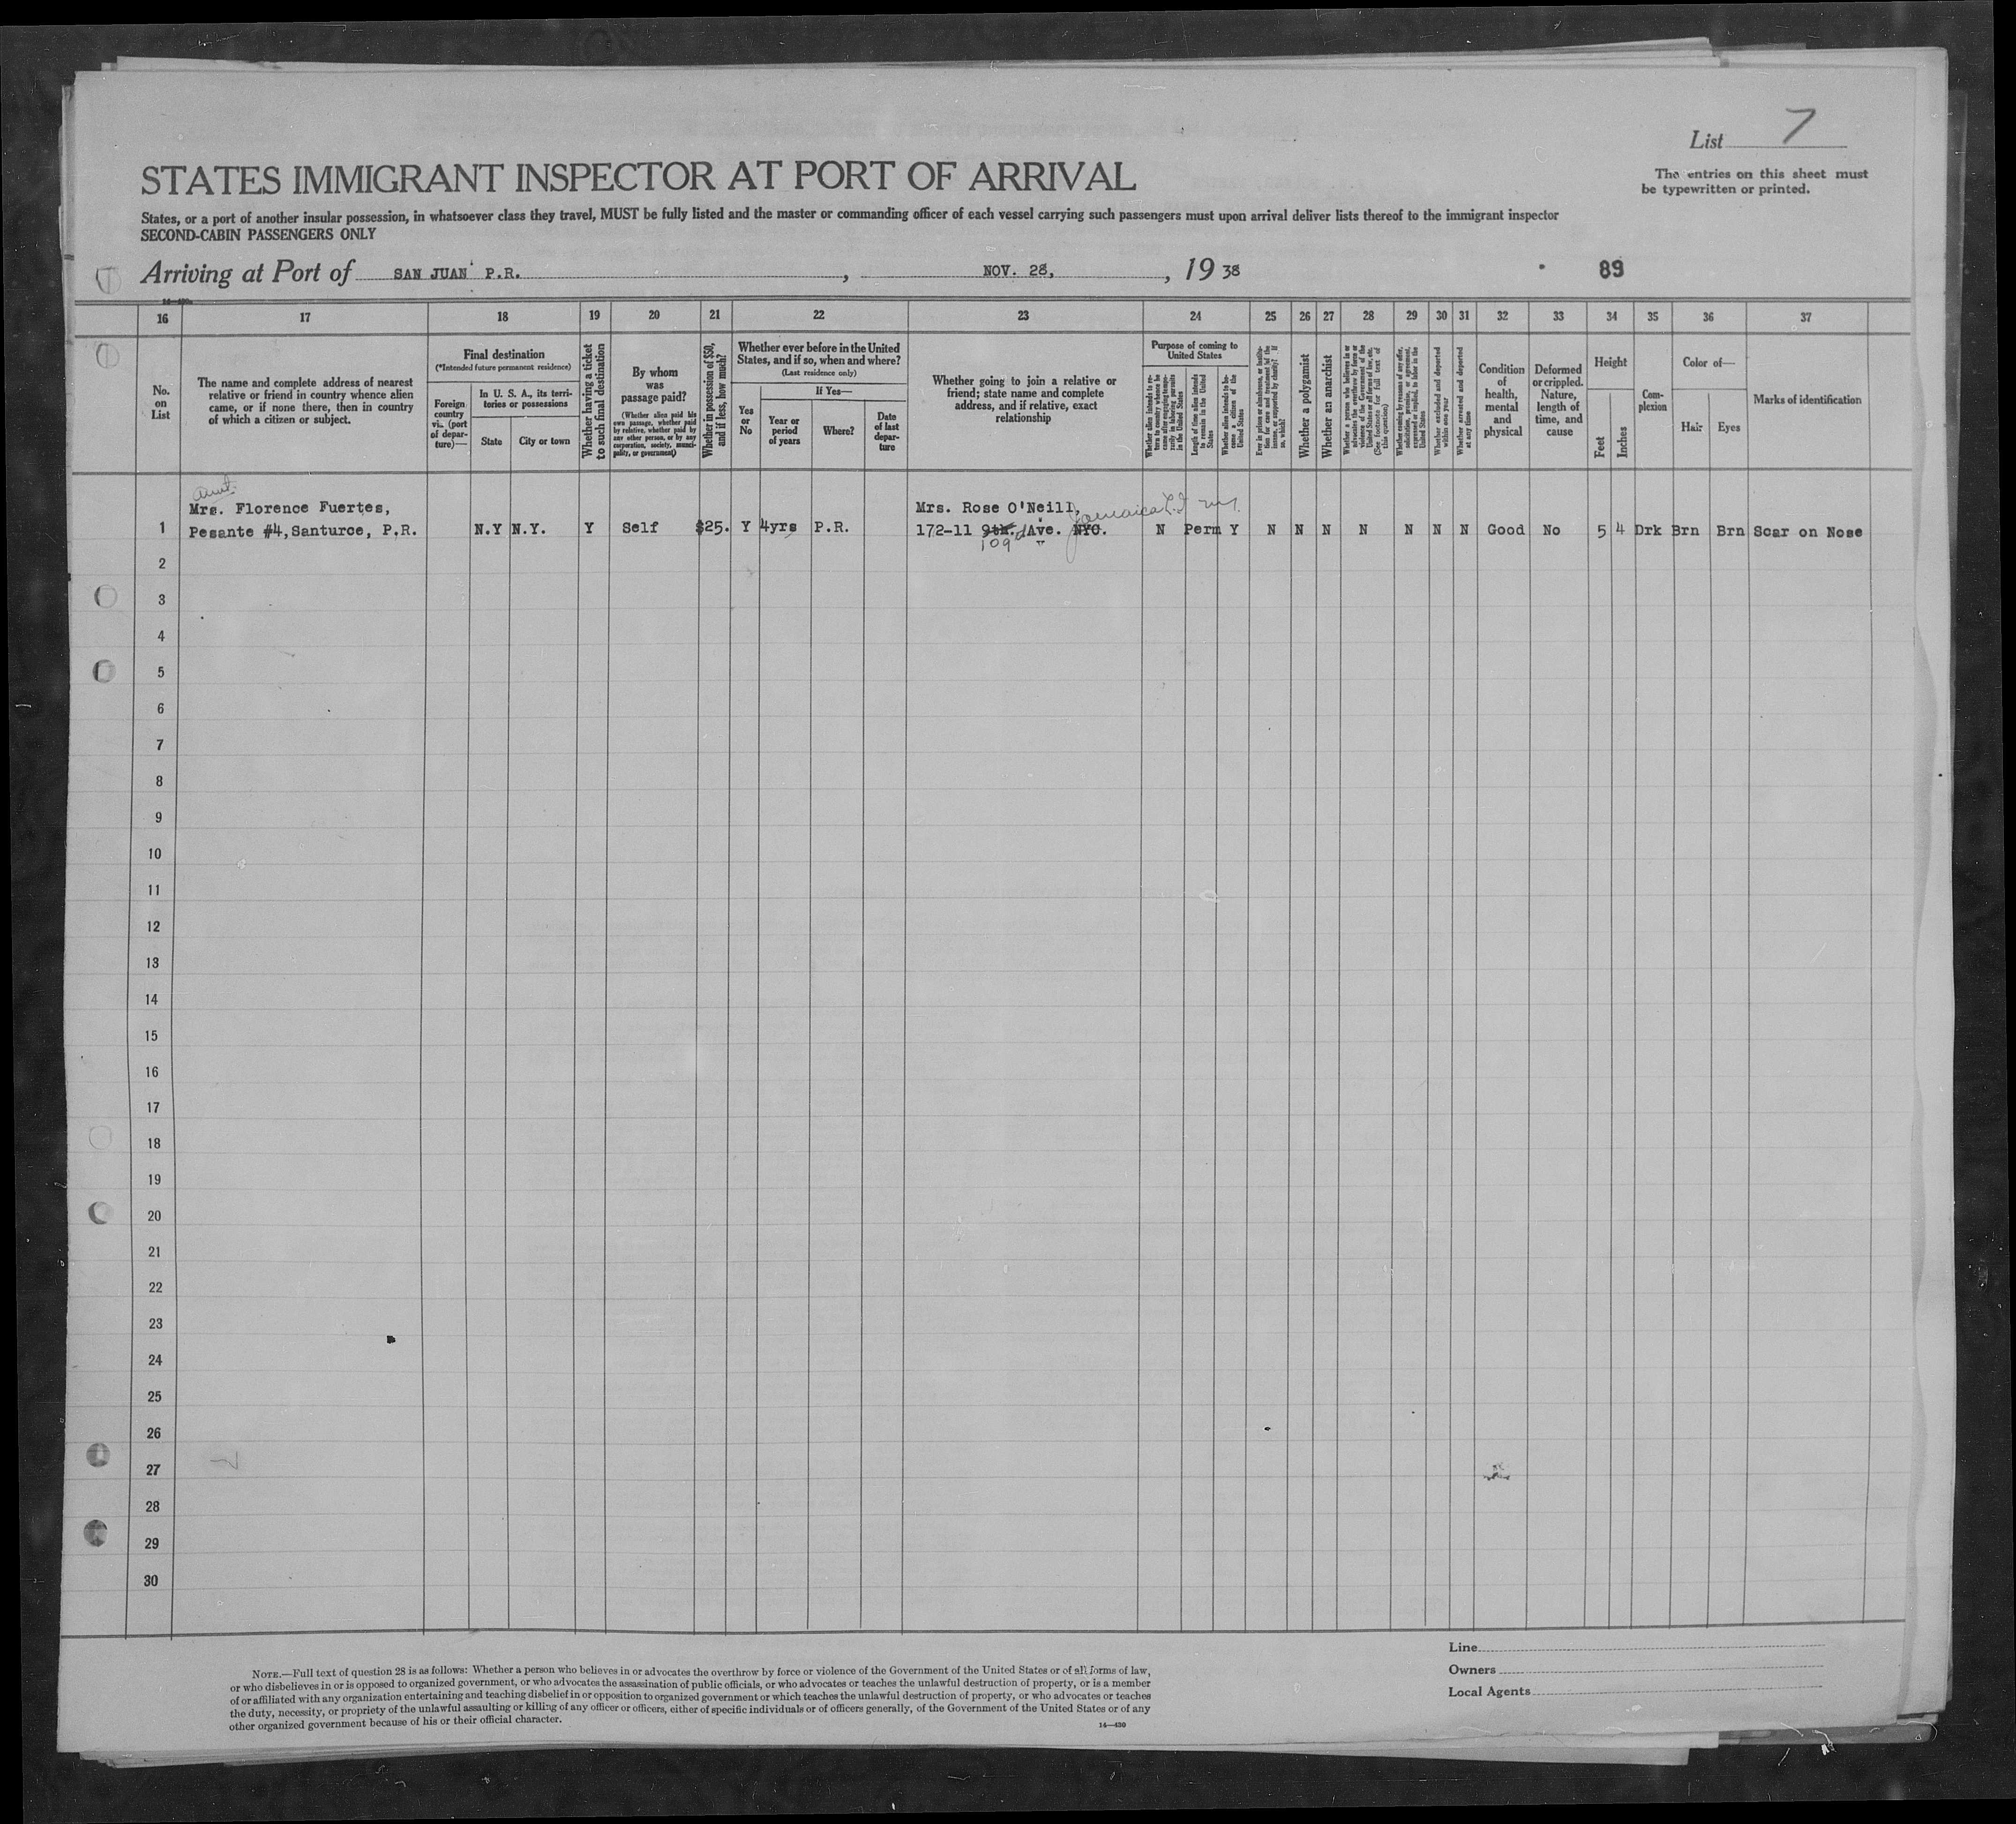 List 7
The entries on this sheet must
be typewritten or printed.
STATES IMMIGRANT INSPECTOR AT PORT OF ARRIVAL
States, or a port of another insular possession, in whatsoever class they travel, MUST be fully listed and the master or commanding officer of each vessel carrying such passengers must upon arrival deliver lists thereof to the immigrant inspector
SECOND-CABIN PASSENGERS ONLY
Arriving at Port of SAN JUAN P.R. , NOV. 28, , 19 38
89
16 17 18 19 20 21 22 23 24 25 26 27 28 29 30 31 32 33 34 35 36 37
No.
on
List
The name and complete address of nearest
relative or friend in country whence alien
came, or if none there, then in country
of which a citizen or subject.
Final destination
(*Intended future permanent residence)
Foreign
country
via (port
of depar-
ture)—
In U. S. A., its terri-
tories or possessions
State
City or town
Whether having a ticket
to such final destination
By whom
was
passage paid?
(Whether alien paid his
own passage, whether paid
by relative, whether paid by
any other person, or by any
corporation, society, munici-
pality, or government)
Whether in possession of $50,
and if less, how much?
Whether ever before in the United
States, and if so, when and where?
(Last residence only)
Yes
or
No
If Yes—
Year or
period
of years
Where?
Date
of last
depar-
ture
Whether going to join a relative or
friend; state name and complete
address, and if relative, exact
relationship
Purpose of coming to
United States
Whether alien intends to re-
turn to country whence he
came after engaging tempo-
rarily in laboring pursuits
in the United States
Length of time alien intends
to remain in the United
States
Whether alien intends to be-
come a citizen of the
United States
Ever in prison or almshouse, or institu-
tion for care and treatment of the
insane, or supported by charity? If
so, which?
Whether a polygamist
Whether an anarchist
Whether a person who believes in or
advocates the overthrow by force or
violence of the Government of the
United States or all forms of law, etc.
(See footnote for full text of
this question)
Whether coming by reason of any offer,
solicitation, promise, or agreement,
expressed or implied, to labor in the
United States
Whether excluded and deported
within one year
Whether arrested and deported
at any time
Condition
of
health,
mental
and
physical
Deformed
or crippled.
Nature,
length of
time, and
cause
Height
Feet
Inches
Com-
plexion
Color of—
Hair
Eyes
Marks of identification
aunt
Mrs. Florence Fuertes, Mrs. Rose O'Neill, Jamaica L.I. NY.
1 Pesante #4, Santurce, P.R. N.Y N.Y. Y Self $25. Y 4yrs P.R. 172-11 9th. Ave. NYC. N Perm Y N N N N N N N Good No 5 4 Drk Brn Brn Scar on Nose
109
2
3
4
5
6
7
8
9
10
11
12
13
14
15
16
17
18
19
20
21
22
23
24
25
26
27
28
29
30
Line
Owners
Local Agents
NOTE.—Full text of question 28 is as follows: Whether a person who believes in or advocates the overthrow by force or violence of the Government of the United States or of all forms of law,
or who disbelieves in or is opposed to organized government, or who advocates the assassination of public officials, or who advocates or teaches the unlawful destruction of property, or is a member
of or affiliated with any organization entertaining and teaching disbelief in or opposition to organized government or which teaches the unlawful destruction of property, or who advocates or teaches
the duty, necessity, or propriety of the unlawful assaulting or killing of any officer or officers, either of specific individuals or of officers generally, of the Government of the United States or of any
other organized government because of his or their official character.
14—430